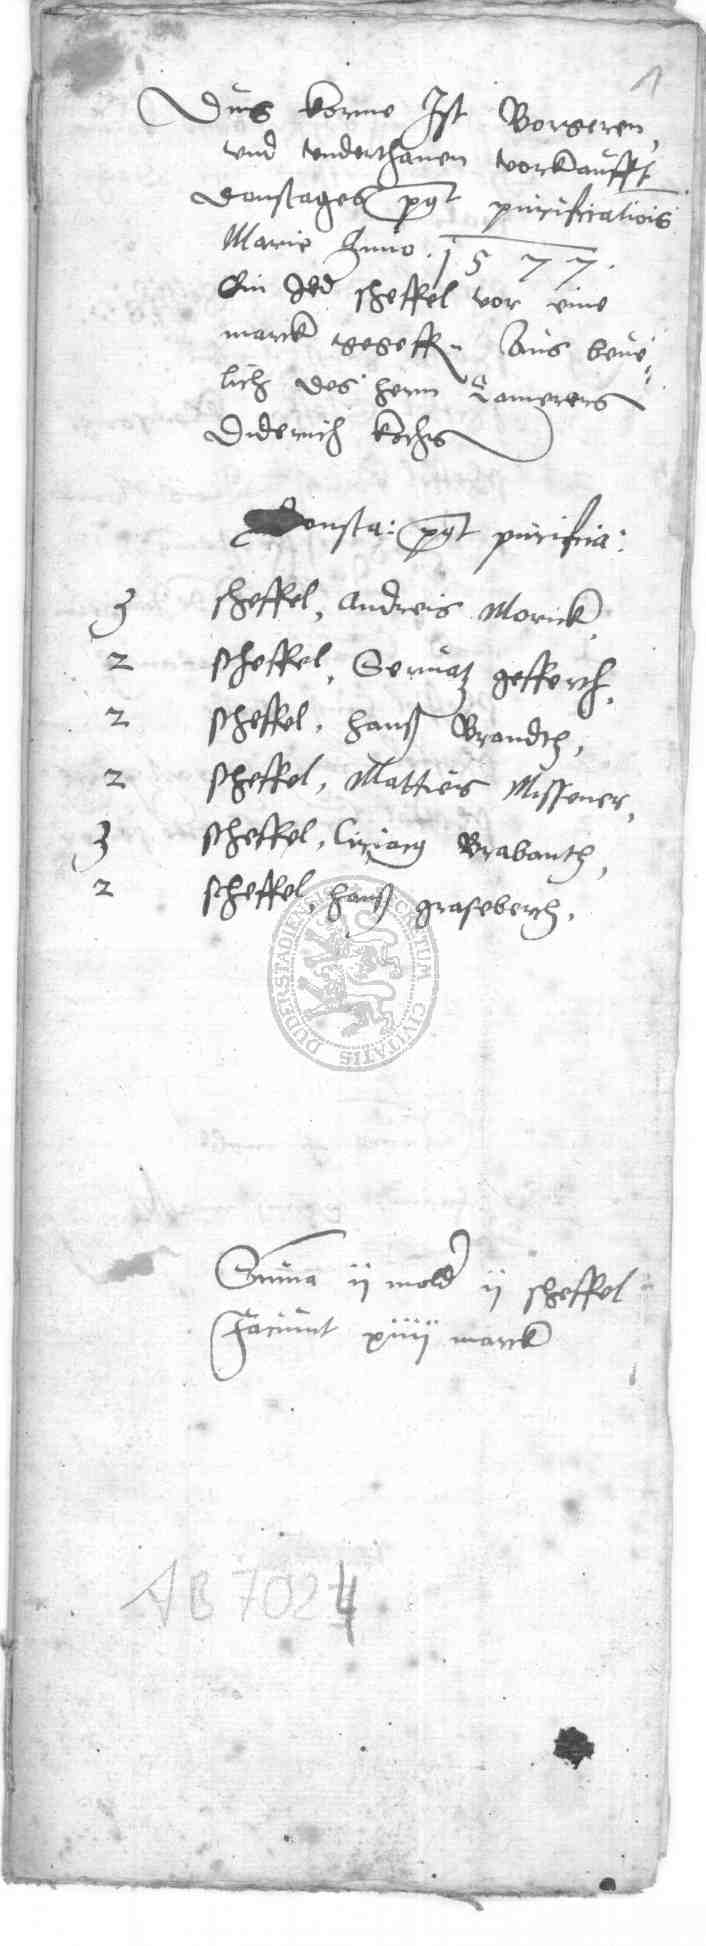 1
Duis korne Ist Borgeren,
vnd vnderthanen vorkaufft
Donstages pq̄t purificatiōis
Marie Anno . 1577.
Ein Jed scheffel vor eine
marck gegeffn Aus beue¬
lich des hern Camerers
Diderich kochs
Donsta: pq̄t purifica:
3 scheffel, Andreis Morick,
2 scheffel, Seruatz gefferth,
2 scheffel, hanß Brandth,
2 scheffel, Mattiės Missener,
3 scheffel, Ciriacg Brabanth,
2 scheffel, hanß graseberch,
SECRETUM CIVITATIS DUDERSTADIENS
Suma ij mold ij scheffel
Faciunt xiiij marck
AB 7024